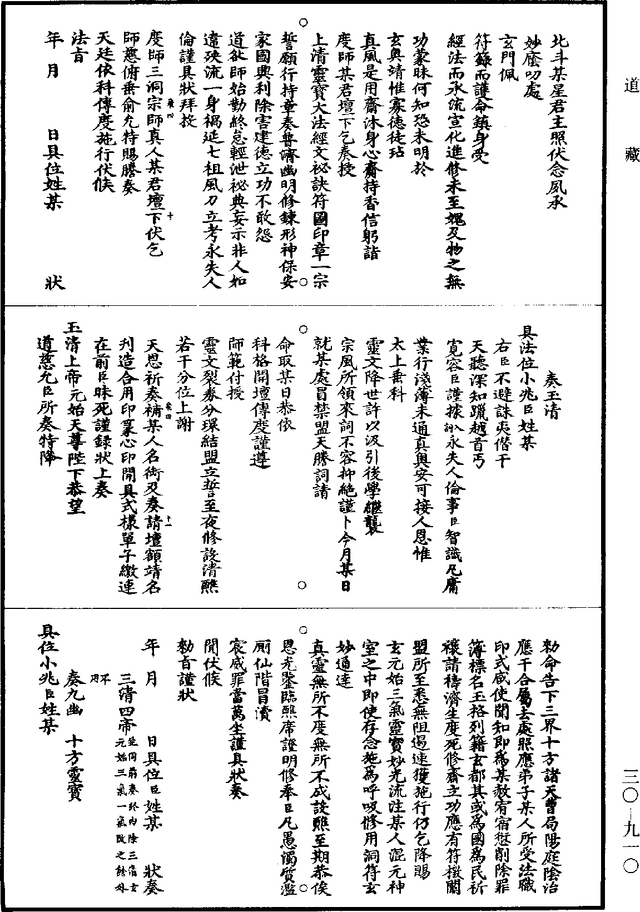 道藏
北斗某星君主照伏念夙承
妙廕叨處
玄門佩
符籙而護命鎮身受
經法而承流宣化進修未至愧及物之無
功蒙昧何知恐未明於
玄奧靖惟寡德徒玷
真風是用齋沐身心齎持香信躬詣
度師某君壇下乞奏授
上清靈寶大法經文秘訣符圖印章一宗
誓願行持章奏普濟幽明修鍊形神保安
家國興利除害建德立功不敢怨
道欲師始勤終怠輕泄祕典妄示非人如
違殃流一身禍延七祖風刀立考永失人
倫謹具狀拜投
度師三洞宗師真人某君壇下伏乞
師慈俯垂俞允特賜謄奏
天廷依科傳度施行伏候
法旨
年月 日具位姓某 狀
奏玉清
具法位小兆臣姓某
右臣不避誅夷僭干
天聽深知躐越首丐
寬容臣謹據云云永失人倫事臣智識凡庸
業行淺薄未通真奧安可接人恩惟
太上垂科
靈文降世許以汲引後學繼襲
宗風所領來詞不容抑絕謹卜今月某日
就某處肩禁盟天謄詞請
命取某日恭依
科格開壇傳度謹遵
師範付授
靈文裂券分環結盟立誓至夜修設清醮
若干分位上謝
天恩祈奏補某人名銜及奏請壇額靖名
刋造合用印篆心印開具式樣單子繳連
在前臣昧死謹錄狀上奏
玉清上帝元始天尊陛下恭望
道慈允臣所奏特降
勑命告下三界十方諸天曹局陽庭陰治
應干合屬去處照應弟子某人所受法職
印式咸使聞知即為某赦宥宿愆削除罪
簿標名玉格列籍玄都其或為國為民祈
禳請禱濟生度死修齋立功應有符檄關
盟所至悉無阻遏速獲施行仍乞降賜
玄元始三氣靈寶妙光流注某人混元神
室之中即使存念施為呼吸修用洞符玄
妙通達
真靈無所不度無所不成設醮至期恭俟
恩光鑒臨醮席證明修奉臣凡愚濁質濫
厠仙階冒瀆
宸威罪當萬坐謹具狀奏
聞伏候
勑旨謹狀
年月 日具位臣姓某 狀奏
三清四帝
奏九幽 十方靈寶
具位小兆臣姓某
三〇—九一〇